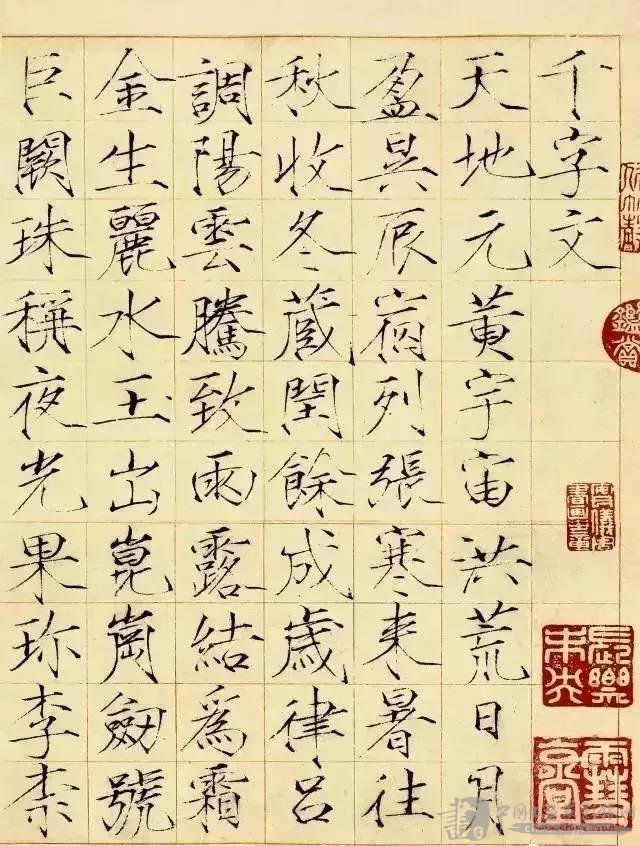 千字文
天地元黄宇宙洪荒日月
盈昃辰宿列張寒来暑往
秋收冬蔵閏餘成歳律吕
調陽雲騰致雨露結爲霜
金生麗水玉出崑崗劒號
巨闕珠稱夜光果珎李柰
鑑賞
長樂未央